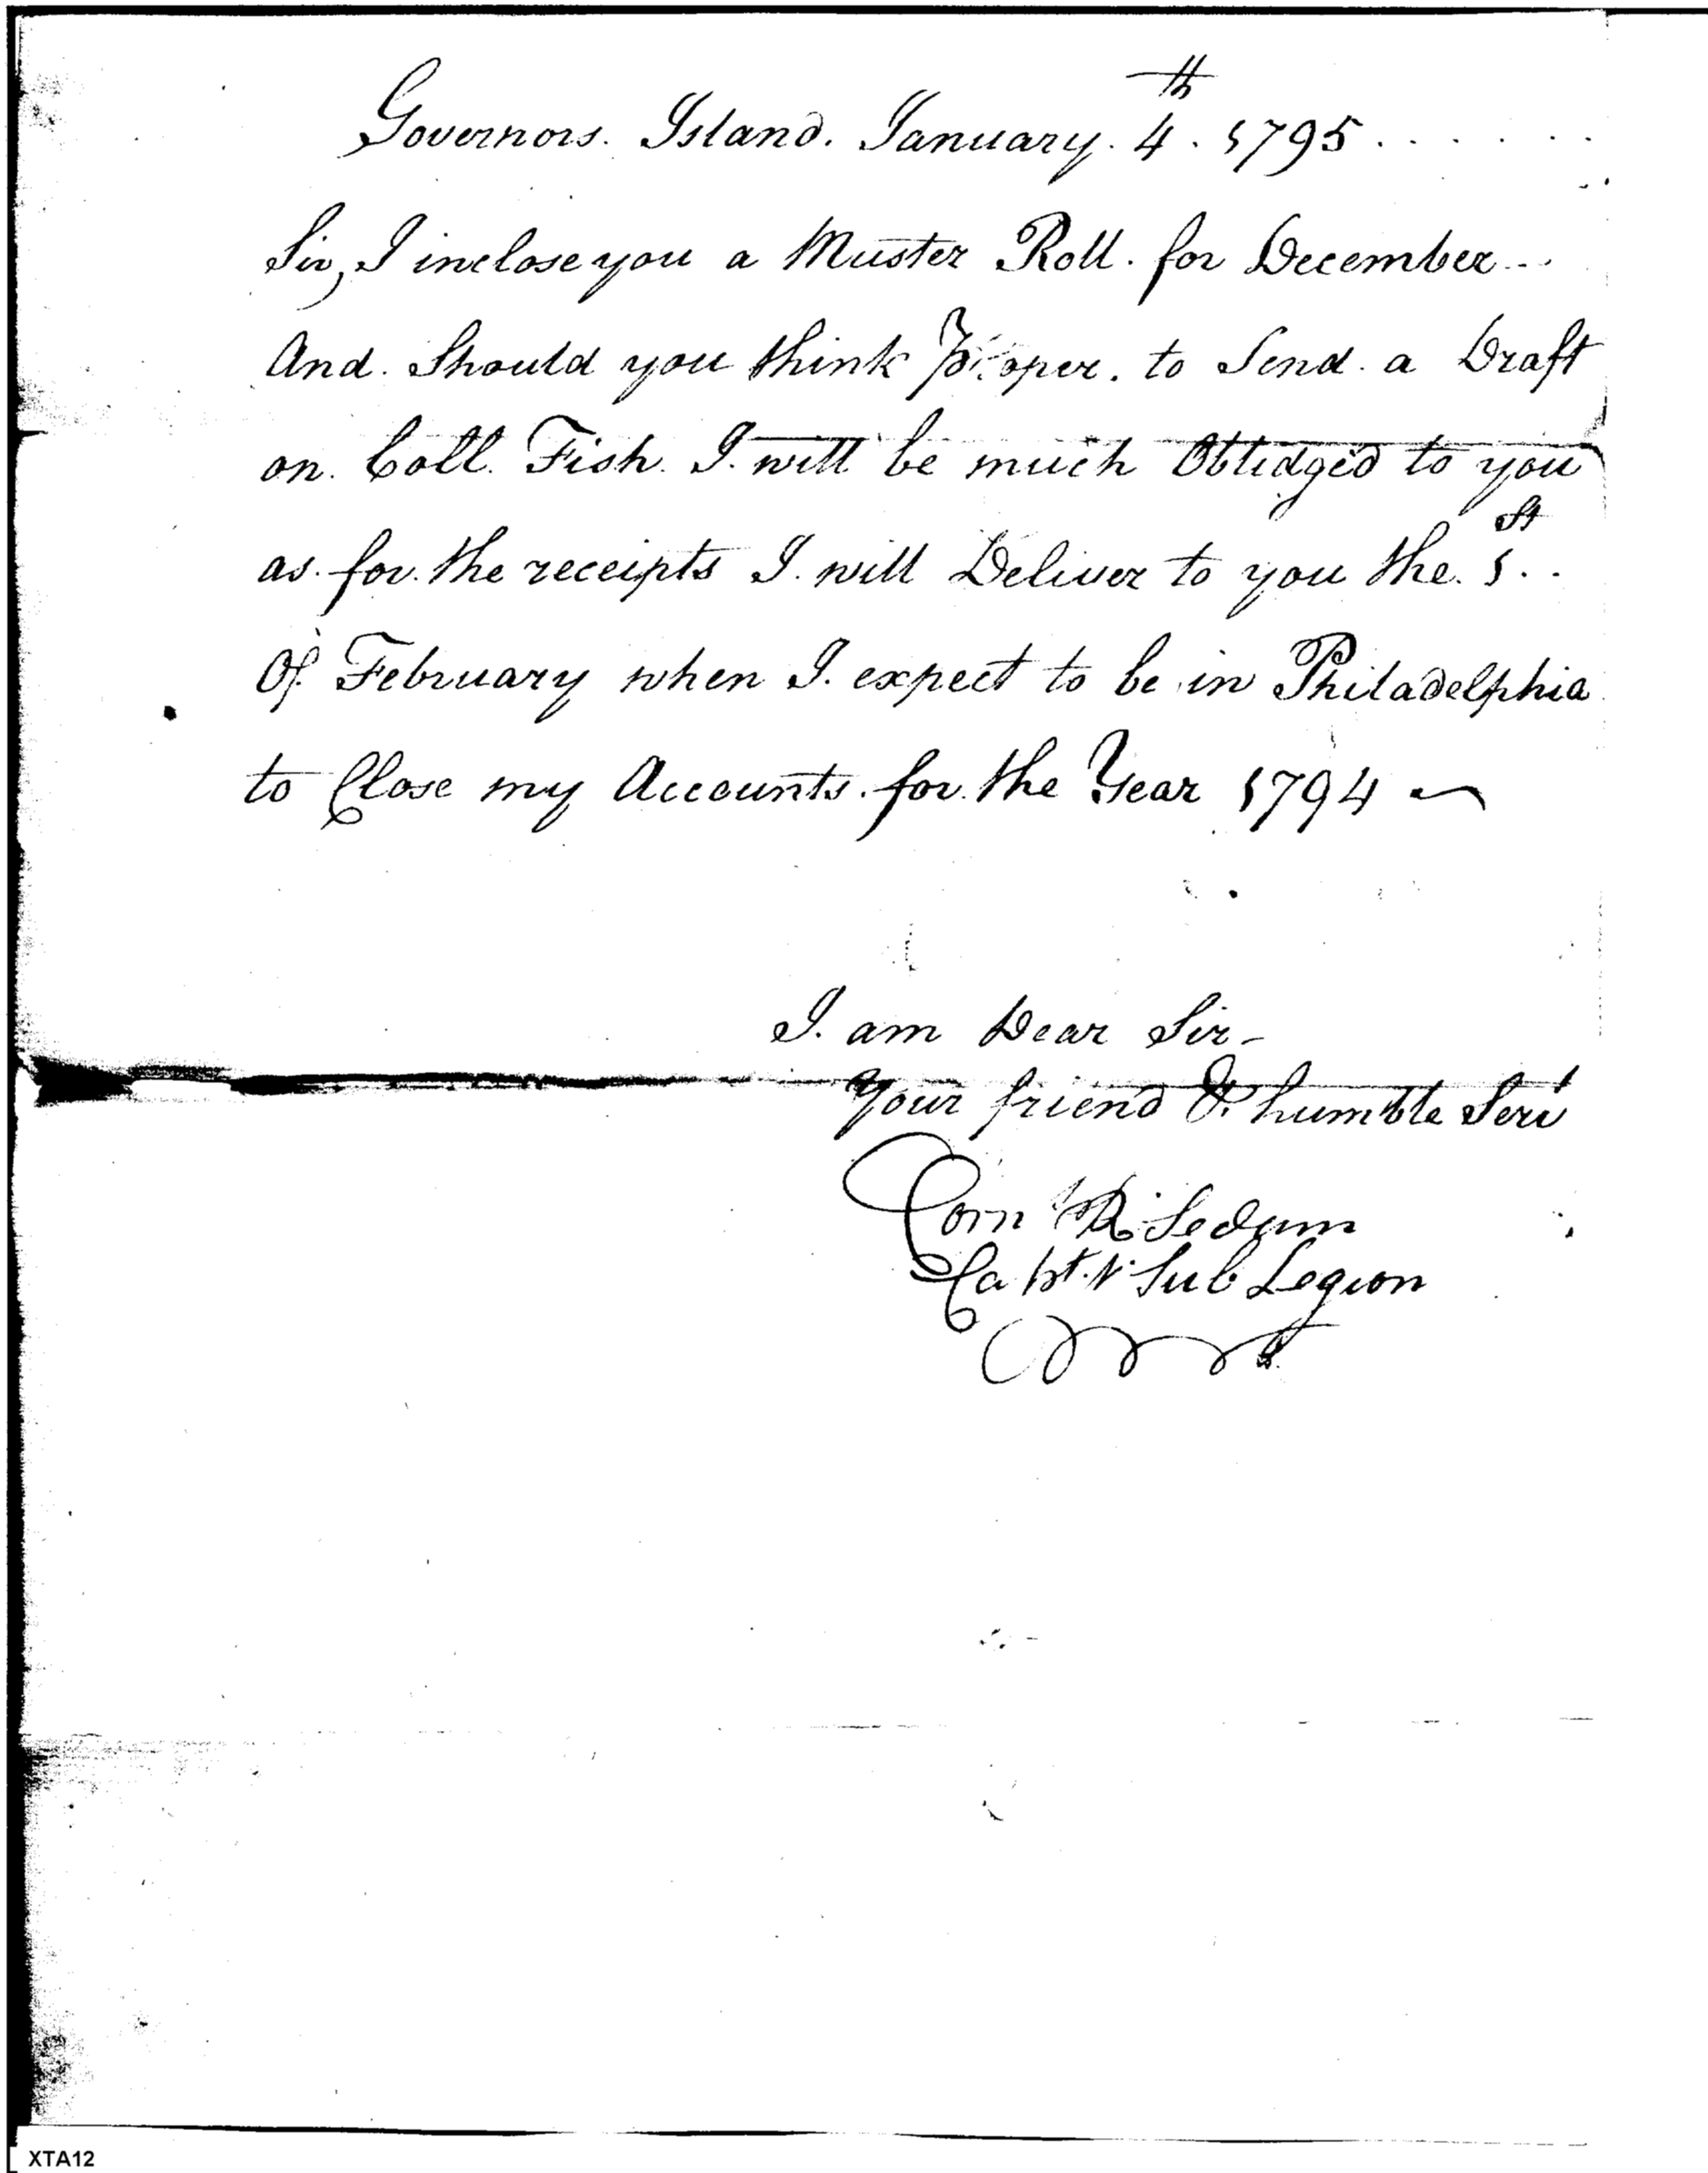 Governors. Island. January. 4th. 1795 . . . . . .
Sir, I inclose you a Muster Roll. for December - . .
And. Should you think Proper. to Send. a Draft
on. Coll. Fish. I. will be much Oblidged to you
as. for. the receipts I. will Deliver to you the. 1st. .
Of. February when I. expect to be in Philadelphia
to Close my Accounts. for. the Year 1794 ~
I. am Dear Sir -
Your friend & humble Servt
Corn R Sedam
Capt. 1 Sub Legion
XTA12